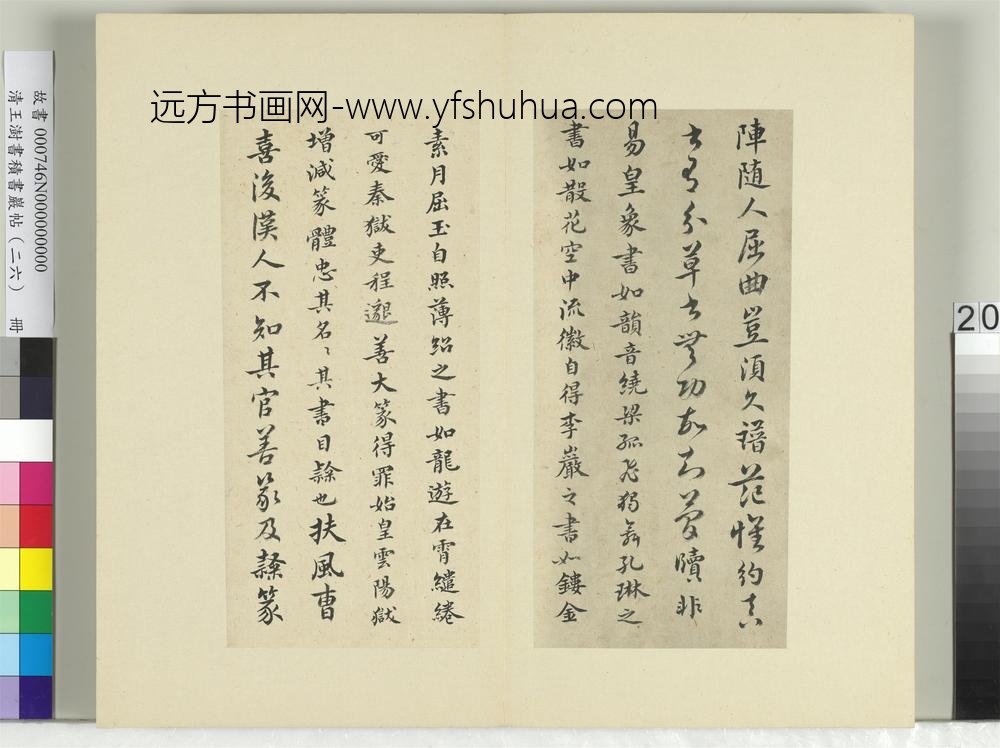 远方书画网-www.yfshuhua.com
陣随人屈曲豈須久譜范惟約真
書有分草書無功故知簡牘非
易皇象書如韻音繞梁孤飛獨舞孔琳之
書如散花空中流徽自得李巖之書如鏤金
素月屈玉自照薄紹之書如龍遊在霄繾綣
可愛秦獄吏程邈善大篆得罪始皇雲陽獄
增減篆體忠其名〻其書曰隸也扶風曺
喜後漢人不知其官善篆及隸篆
故書 000746N000000000
清王澍書積書巖帖(二六) 冊
20